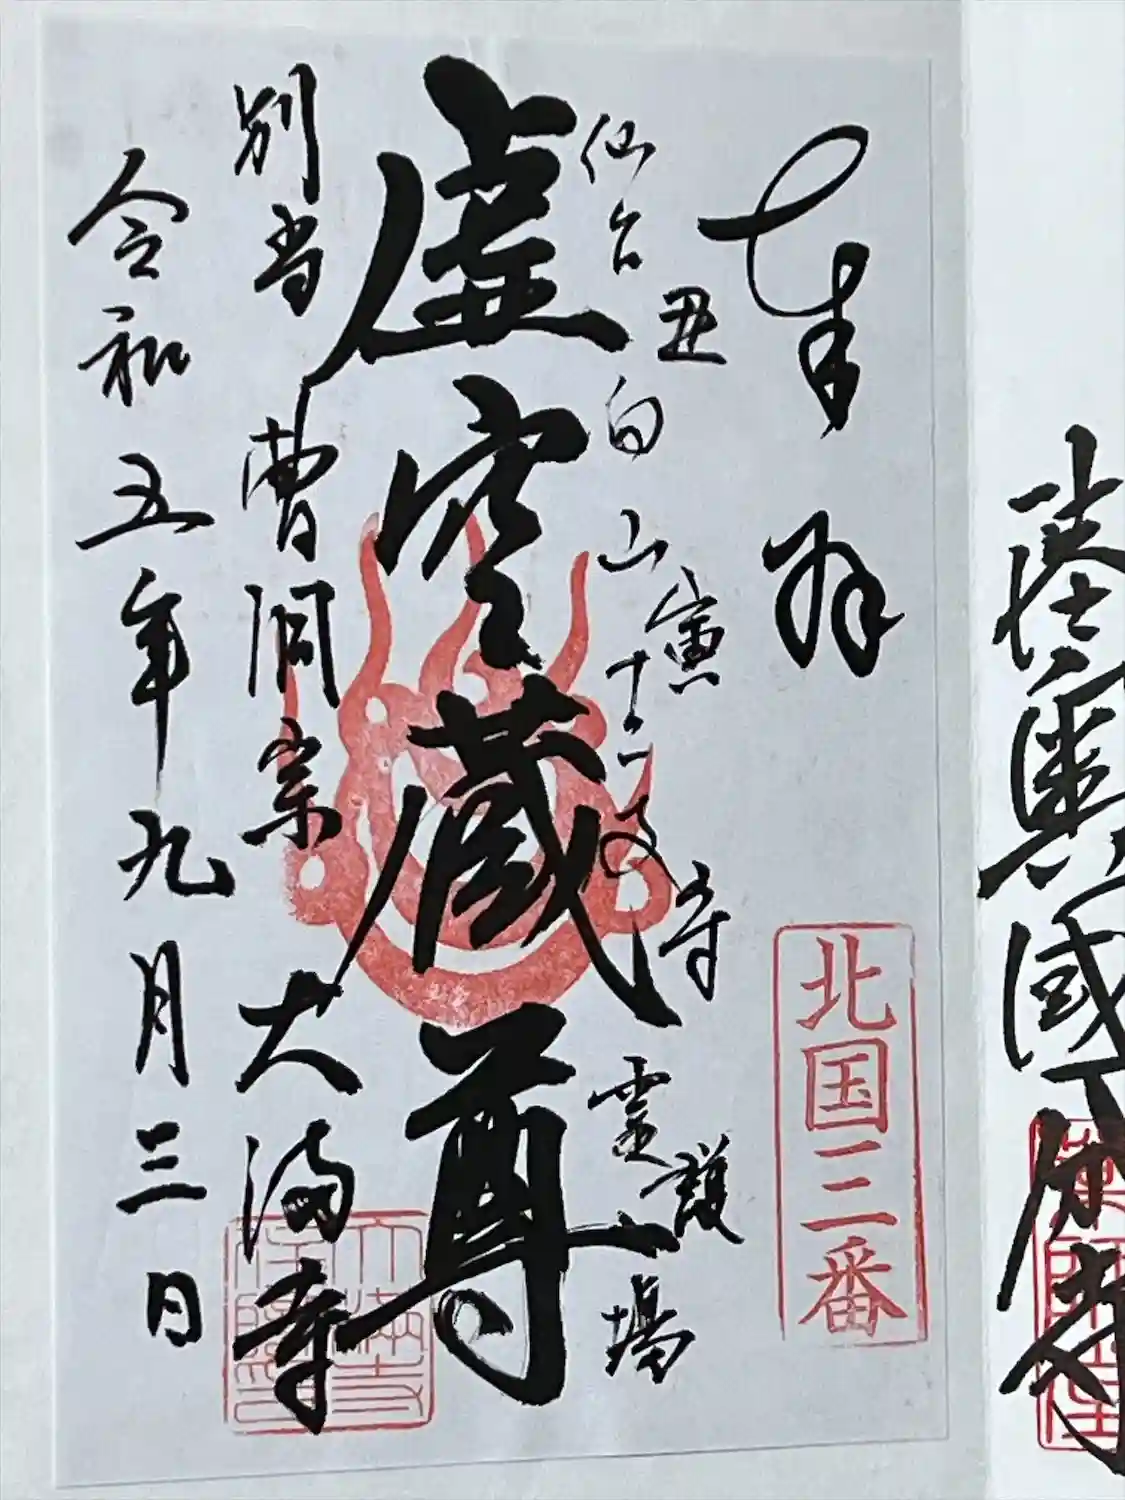 陸奥國分寺
奉拝
北国三番
丑寅守護
仙台向山十二支霊場
虚空蔵尊
別当 曹洞宗 大満寺
令和五年九月三日